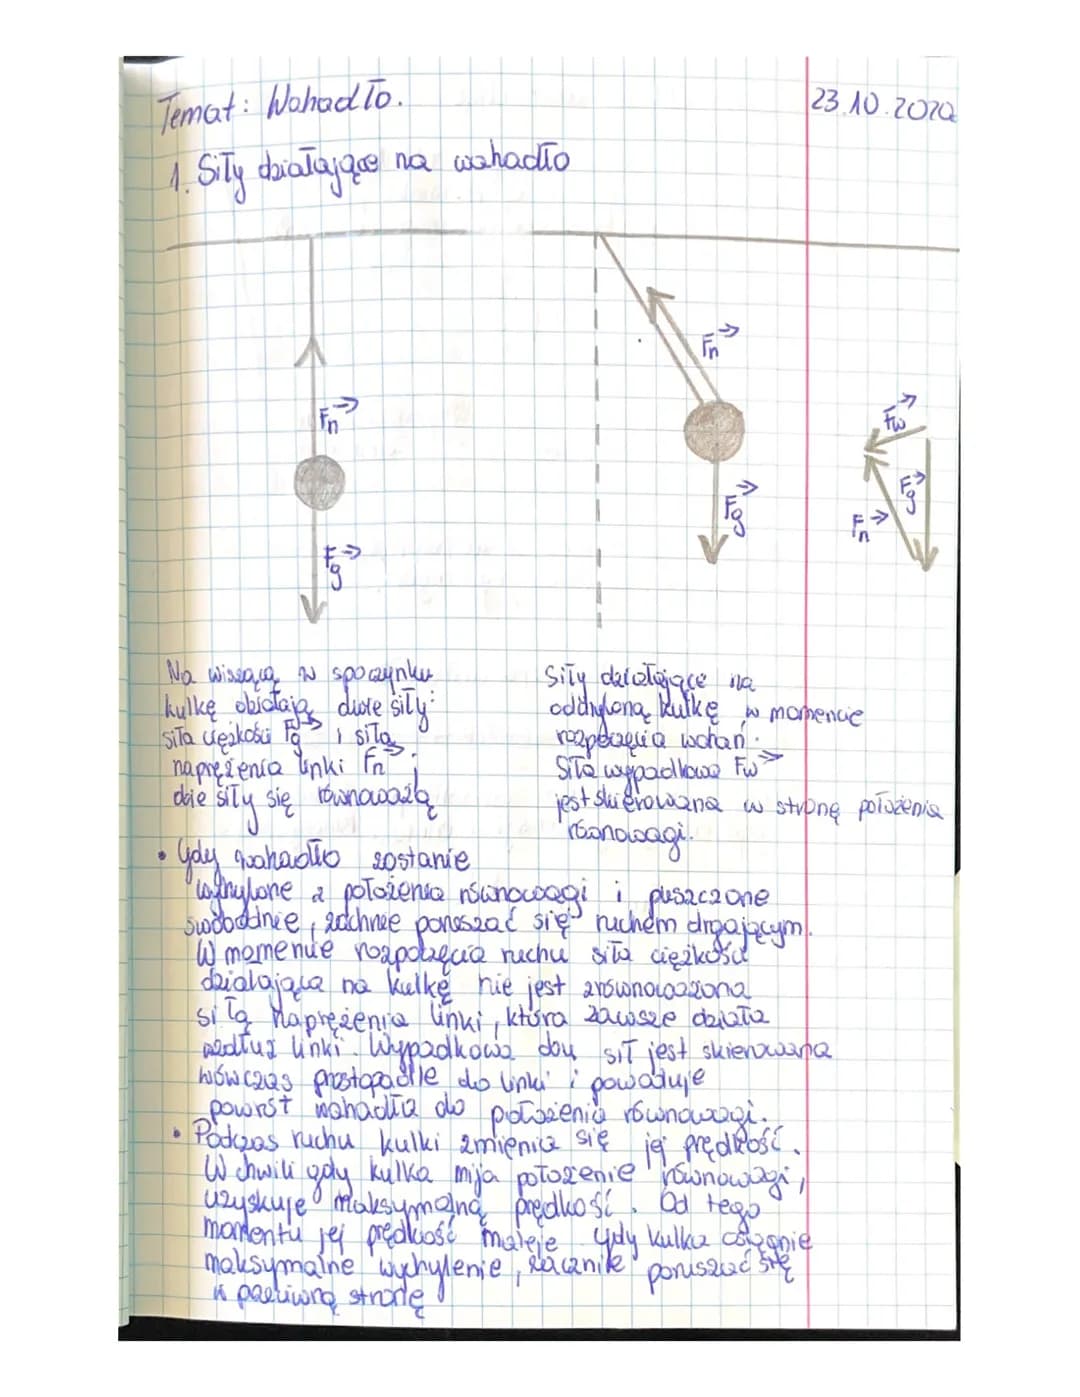 Temat: Wahadło.
23.10.2020
1. Siły działające na wahadło
Fn
Fg
Fn
Fg
Fw
Fg
Fn
Na wiszącą w spoczynku
kulkę działają dwie siły:
siła ciężkości Fg i siła
naprężenia linki Fn;
siły się równoważą
Siły działające na
odchyloną kulkę w momencie
rozpoczęcia wahań.
Siła wypadkowa Fw
jest skierowana w stronę położenia
równowagi.
• Gdy wahadło zostanie
wychylone z położenia równowagi i puszczone
swobodnie, zacznie poruszać się ruchem drgającym.
W momencie rozpoczęcia ruchu siła ciężkości
działająca na kulkę nie jest zrównoważona
siłą naprężenia linki, która zawsze działa
wzdłuż linki. Wypadkowa dwu sił jest skierowana
wówczas prostopadle do linki i powoduje
powrót wahadła do położenia równowagi.
• Podczas ruchu kulki zmienia się jej prędkość.
W chwili gdy kulka mija położenie równowagi,
uzyskuje maksymalną prędkość. Od tego
momentu jej prędkość maleje. Gdy kulka osiągnie
maksymalne wychylenie, zacznie poruszać się
w przeciwną stronę